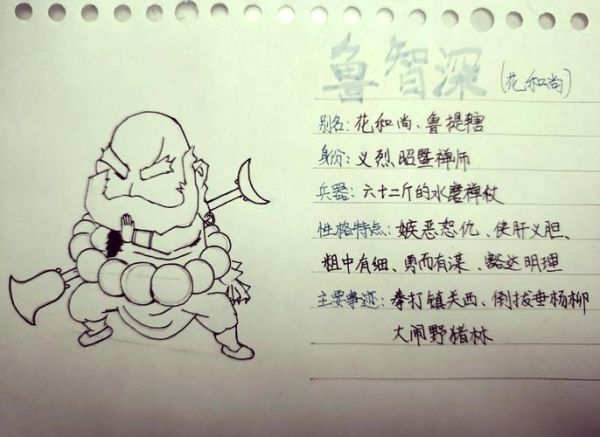 鲁智深(花和尚)
别名:花和尚、鲁提辖
身份:义烈昭暨禅师
兵器:六十二斤的水磨禅杖
性格特点:嫉恶怨仇、侠肝义胆、
粗中有细、勇而有谋、豁达明理
主要事迹:拳打镇关西、倒拔垂杨柳
大闹野猪林